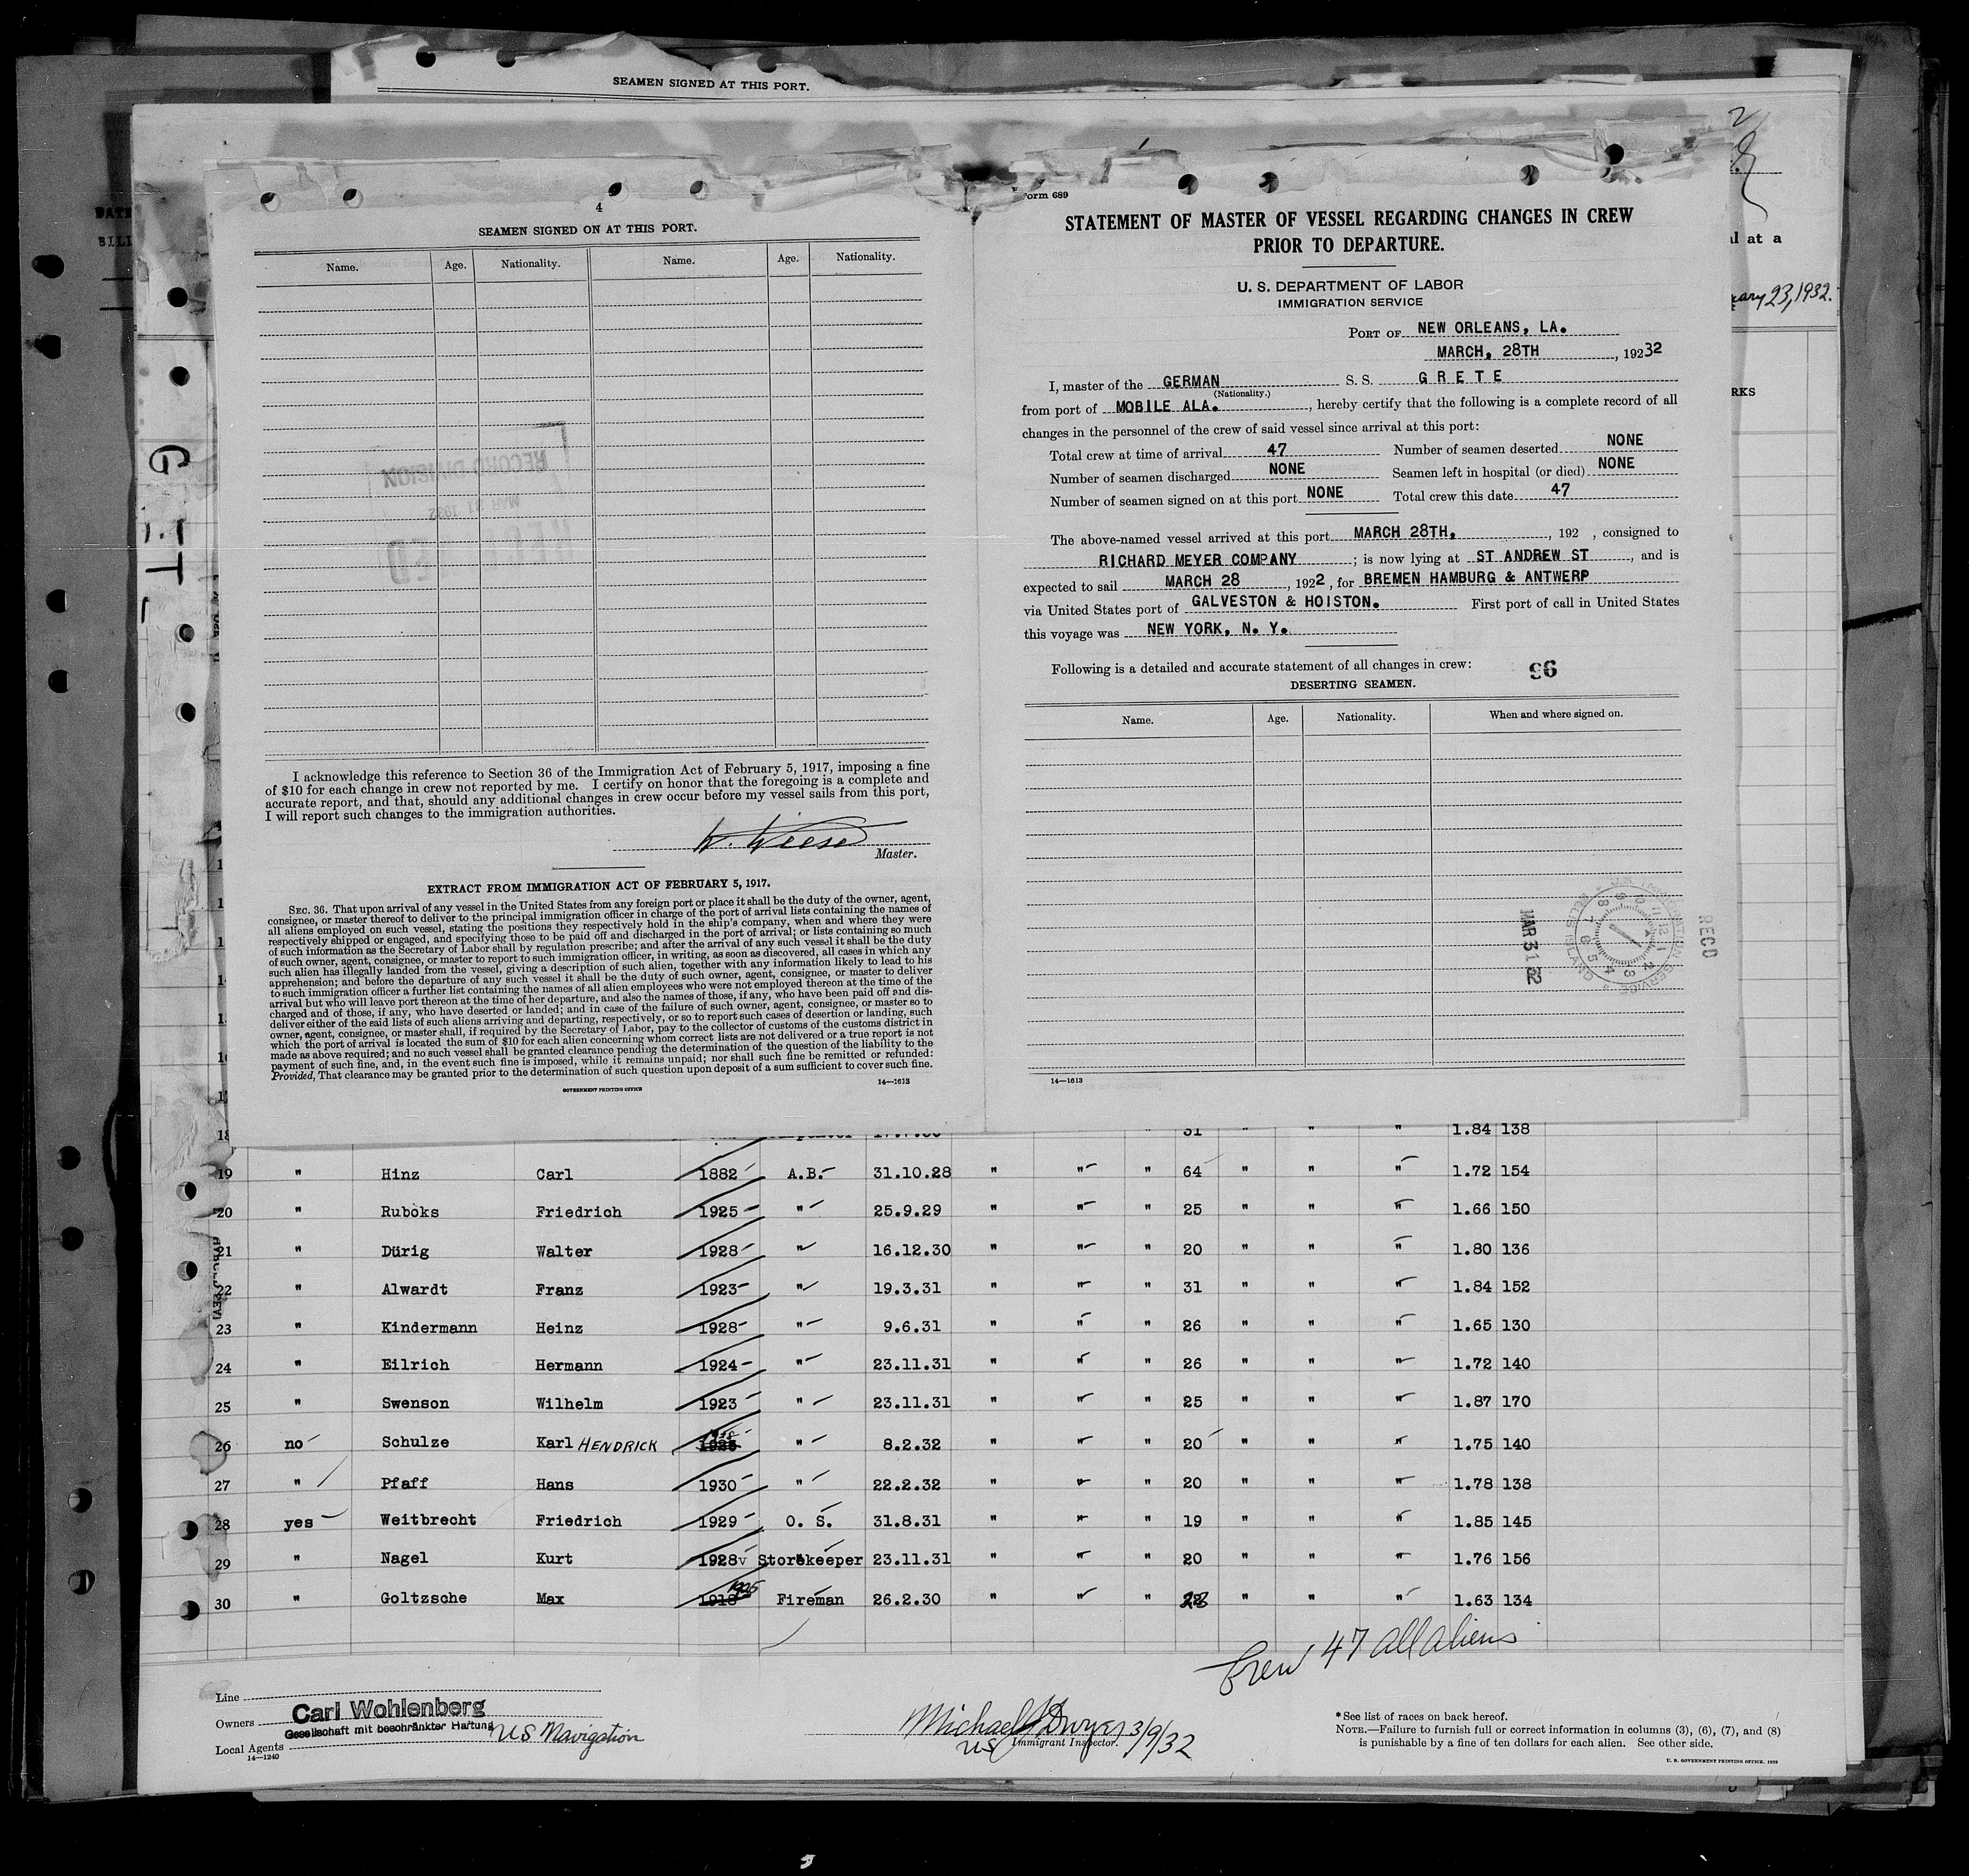 SEAMEN SIGNED AT THIS PORT.
4
SEAMEN SIGNED ON AT THIS PORT.
Name. Age. Nationality. Name. Age. Nationality.
RECEIVED
MAR 31 1932
RECORD DIVISION
I acknowledge this reference to Section 36 of the Immigration Act of February 5, 1917, imposing a fine
of $10 for each change in crew not reported by me. I certify on honor that the foregoing is a complete and
accurate report, and that, should any additional changes in crew occur before my vessel sails from this port,
I will report such changes to the immigration authorities.
W. Wiese
Master.
EXTRACT FROM IMMIGRATION ACT OF FEBRUARY 5, 1917.
SEC. 36. That upon arrival of any vessel in the United States from any foreign port or place it shall be the duty of the owner, agent,
consignee, or master thereof to deliver to the principal immigration officer in charge of the port of arrival lists containing the names of
all aliens employed on such vessel, stating the positions they respectively hold in the ship's company, when and where they were
respectively shipped or engaged, and specifying those to be paid off and discharged in the port of arrival; or lists containing so much
of such information as the Secretary of Labor shall by regulation prescribe; and after the arrival of any such vessel it shall be the duty
of such owner, agent, consignee, or master to report to such immigration officer, in writing, as soon as discovered, all cases in which any
such alien has illegally landed from the vessel, giving a description of such alien, together with any information likely to lead to his
apprehension; and before the departure of any such vessel it shall be the duty of such owner, agent, consignee, or master to deliver
to such immigration officer a further list containing the names of all alien employees who were not employed thereon at the time of the
arrival but who will leave port thereon at the time of her departure, and also the names of those, if any, who have been paid off and dis-
charged and of those, if any, who have deserted or landed; and in case of the failure of such owner, agent, consignee, or master so to
deliver either of the said lists of such aliens arriving and departing, respectively, or so to report such cases of desertion or landing, such
owner, agent, consignee, or master shall, if required by the Secretary of Labor, pay to the collector of customs of the customs district in
which the port of arrival is located the sum of $10 for each alien concerning whom correct lists are not delivered or a true report is not
made as above required; and no such vessel shall be granted clearance pending the determination of the question of the liability to the
payment of such fine, and, in the event such fine is imposed, while it remains unpaid; nor shall such fine be remitted or refunded:
Provided, That clearance may be granted prior to the determination of such question upon deposit of a sum sufficient to cover such fine.
GOVERNMENT PRINTING OFFICE 14—1613
Form 689
STATEMENT OF MASTER OF VESSEL REGARDING CHANGES IN CREW
PRIOR TO DEPARTURE.
U. S. DEPARTMENT OF LABOR
IMMIGRATION SERVICE
PORT OF NEW ORLEANS, LA.
MARCH, 28TH, 19232
I, master of the GERMAN S. S. G R E T E
(Nationality.)
from port of MOBILE ALA., hereby certify that the following is a complete record of all
changes in the personnel of the crew of said vessel since arrival at this port:
Total crew at time of arrival 47 Number of seamen deserted NONE
Number of seamen discharged NONE Seamen left in hospital (or died) NONE
Number of seamen signed on at this port NONE Total crew this date 47
The above-named vessel arrived at this port MARCH 28TH, , 192 , consigned to
RICHARD MEYER COMPANY ; is now lying at ST ANDREW ST , and is
expected to sail MARCH 28 , 1922, for BREMEN HAMBURG & ANTWERP
via United States port of GALVESTON & HOISTON. First port of call in United States
this voyage was NEW YORK, N. Y.
Following is a detailed and accurate statement of all changes in crew: 96
DESERTING SEAMEN.
Name. Age. Nationality. When and where signed on.
RECD
MAR 31
14—1613
l at a
uary 23, 1932.
RKS
18 31 " " " 1.84 138
19 " Hinz Carl 1882 A.B. 31.10.28 " " " 64 " " " 1.72 154
20 " Ruboks Friedrich 1925 " 25.9.29 " " " 25 " " " 1.66 150
21 " Dürig Walter 1928 " 16.12.30 " " " 20 " " " 1.80 136
22 " Alwardt Franz 1923 " 19.3.31 " " " 31 " " " 1.84 152
23 " Kindermann Heinz 1928 " 9.6.31 " " " 26 " " " 1.65 130
24 " Eilrich Hermann 1924 " 23.11.31 " " " 26 " " " 1.72 140
25 " Swenson Wilhelm 1923 " 23.11.31 " " " 25 " " " 1.87 170
26 no Schulze Karl HENDRICK " 8.2.32 " " " 20 " " " 1.75 140
27 " Pfaff Hans 1930 " 22.2.32 " " " 20 " " " 1.78 138
28 yes Weitbrecht Friedrich 1929 O. S. 31.8.31 " " " 19 " " " 1.85 145
29 " Nagel Kurt 1928 Storekeeper 23.11.31 " " " 20 " " " 1.76 156
30 " Goltzsche Max 1918 1925 Fireman 26.2.30 " " " " " " 1.63 134
Crew 47 all aliens
Line
Owners Carl Wohlenberg
Gesellschaft mit beschränkter Haftung
Local Agents US Navigation
14—1240
Michael J Dwyer 3/9/32
US Immigrant Inspector.
* See list of races on back hereof.
NOTE.—Failure to furnish full or correct information in columns (3), (6), (7), and (8)
is punishable by a fine of ten dollars for each alien. See other side.
U. S. GOVERNMENT PRINTING OFFICE, 1929